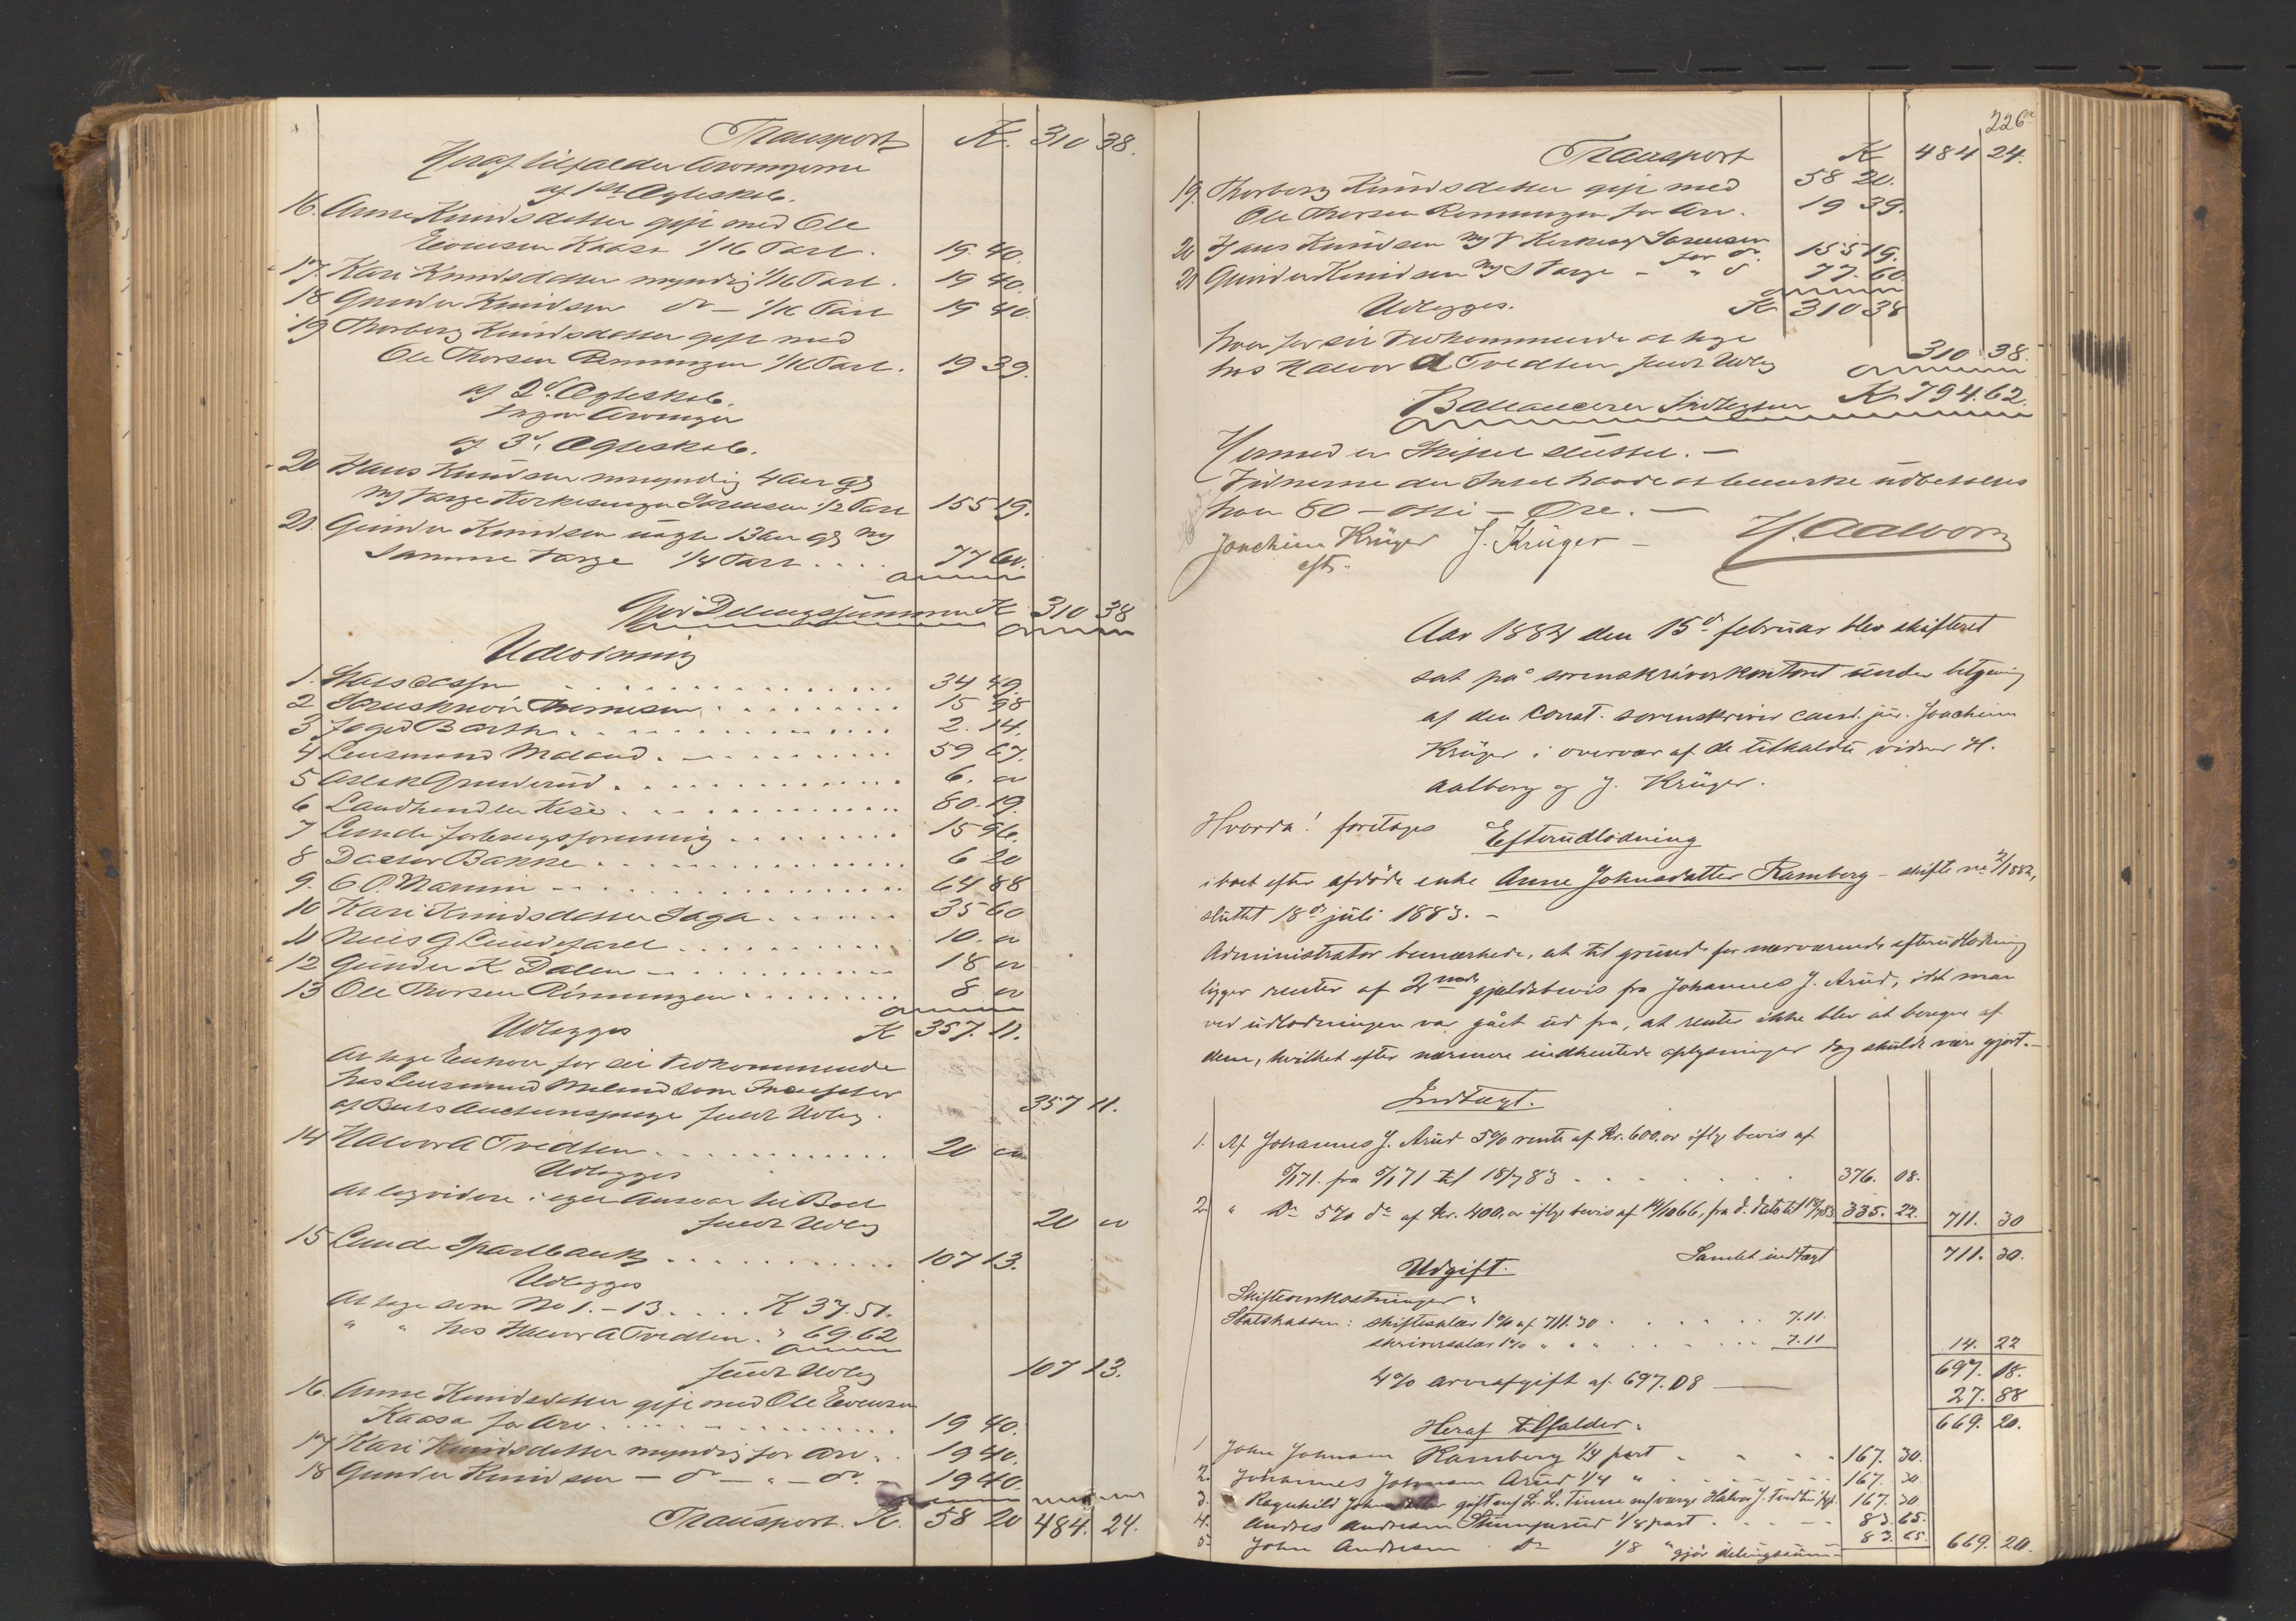 Transport K. 310 38.
Heraf tilfalder Arvingerne
af 1ste Ægteskab.
16. Anne Knudsdatter gift med Ole
Evensen Kaasa 1/16 Part. 19. 40.
17. Kari Knudsdatter myndig 1/16 Part. 19 40.
18 Gunder Knudsen do - 1/16 Part 19 40.
19 Thorberg Knudsdatter gift med
Ole Thorsen Rønningen 1/16 Part. 19 39.
af 2d Ægteskab.
Ingen Arvinger
af 3d. Ægteskab.
20 Hans Knudsen umyndig 4 Aar gl
Sørensen 1/2 Part 155 19.
21. Gunder Knudsen 13 Aar gl
Samme Værge 1/4 Part .... 77 60.
Gjør Delingssummen K 310 38
Udlodning
1. 34 49.
2 15 98
3 Foged Barth 2. 14.
4 Lensmand Moland . 59 67.
5 Aslak Grunderud . 6. "
6 Landhandler Kise . 80. 19.
7 Lunde forbrugsforening 15 96.
8 Doctor Bakke . 6 20
9. C. O. 64 88
10 Kari Knudsdatter Saga 35 60
11 Niels G Lundefaret 10. "
12 Gunder K Dalen - 18 "
13 Ole Thorsen Rønningen 8 "
Udlægges K 357. 11.
At tage Enhver for sit Vedkommende
hos Lensmand Moland som
af Boets Auctionspenge 357 11.
14 Halvor A Tvedten 20 "
Udlægges
At liqvidere i eget Ansvar til Boet
20 "
15 Lunde Sparebank 107 13.
Udlægges
At tage som No 1.-13. ... K 37.51.
" " hos Halvor A Tvedten. " 69.62
107 13.
16. Anne Knudsdatter gift med Ole Evensen
Kaasa for Arv 19 40.
17 Kari Knudsdatter myndig for Arv . 19 40.
18 Gunder Knudsen - do - " - do - 19 40.
Transport. K. 58 20 484. 24.
226
Transport K 484 24.
58 20.
19. Thorberg Knudsdatter gift med
Ole Thorsen Rønningen for Arv. 19 39.
20 Hans Knudsen Sørensen
for do. 155 19.
21 Gunder Knudsen Værge - " do 77. 60
Udlægges. K 310 38
hver for sit Vedkommende at tage
hos Halvor A Tvedten 310 38.
Ballancerer Indtægten K 794.62.
Hermed er Skiftet sluttet. -
Vidnerne der Intet havde at bemerke udbetaltes
hver 80 - otti - Øre. -
Joachim Krüger J. Krüger - H. Aalborg
cst.
Aar 1884 den 15d februar blev skifteret
sat på sorenskriverkontoret under betjening
af den const. sorenskriver cand. jur. Joachim
Krüger i overvær af de tilkaldte vidner H.
Aalborg og J. Krüger.
Hvorda! foretages Efterudlodning
i boet efter afdøde enke Anne Johnsdatter Ramberg - skifte no 2/1882,
sluttet 18de juli 1883. -
Administrator bemærkede, at til grund for nærværende efterudlodning
ligger renter af 2 gjældsbevis fra Johannes J. Arud, idet man
ved udlodningen var gået ud fra, at renter ikke blev at beregne af
dem, hvilket efter nærmere indhentede oplysninger dog skulde være gjort. -
Indtægt.
1. Af Johannes J. Arud 5% rente af Kr. 600.00 ifølge bevis af
71. fra 71 til 18/7 83 . . . . . 376. 08.
2. " Do 5% do af Kr. 400,00 ifølge bevis af 14/10 66, fra d. dato til 18/7 83 335. 22. 711. 30
Samlet indtægt 711. 30.
Udgift.
Skifteomkostninger:
Statskassen: skiftesalær 1% af 711.30 . . . . . 7.11.
skriversalær 1% " " " . . . . . 7.11 14. 22
697. 08.
4% arveafgift af 697.08 27. 88
669. 20.
Heraf tilfalder:
1 John Johnsen Ramberg 1/4 part . . . 167. 30.
2. Johannes Johnsen Arud 1/4 " . . . 167. 30
3. Ragnhild Johnsdatter gift m/ L. L. Tinne m/værge Halvor J. Tvedten 1/4 p. 167. 30.
4. Andres Andresen Stumperud 1/8 part . . . 83. 65.
5. John Andresen do 1/8 " gjør delingssum- 83. 65. 669. 20.